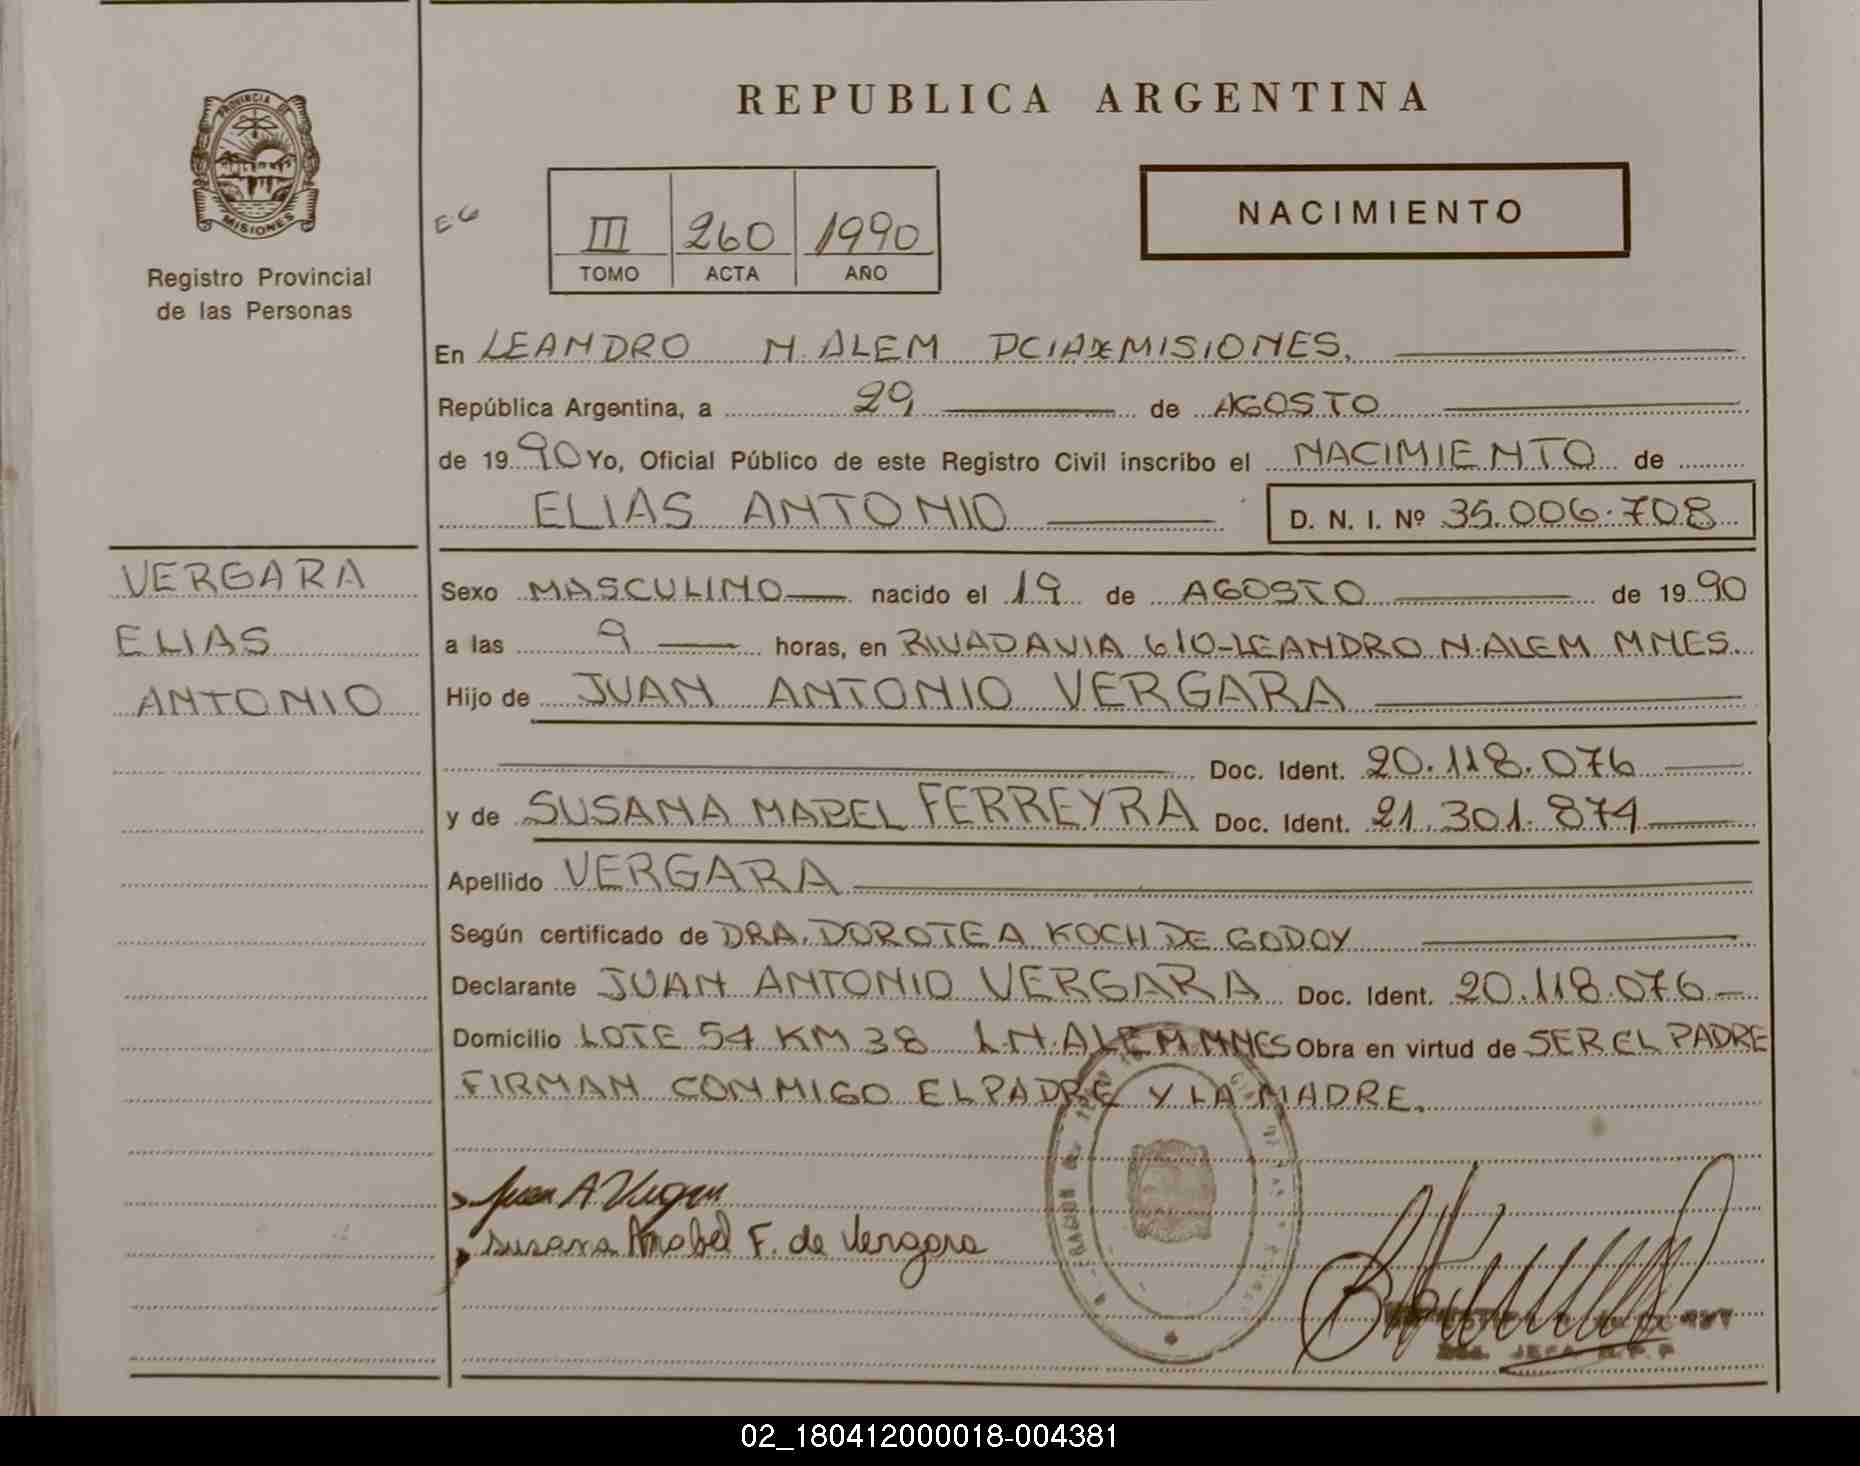 REPUBLICA ARGENTINA
PROVINCIA DE
MISIONES
Registro Provincial
de las Personas
E-6
III 260 1990
TOMO ACTA AÑO
NACIMIENTO
En LEANDRO N. ALEM PCIA DE MISIONES.
República Argentina, a 29 de AGOSTO
de 1990 Yo, Oficial Público de este Registro Civil inscribo el NACIMIENTO de
ELIAS ANTONIO D. N. I. Nº 35.006.708
VERGARA
ELIAS
ANTONIO
Sexo MASCULINO nacido el 19 de AGOSTO de 1990
a las 9 horas, en RIVADAVIA 610-LEANDRO N. ALEM MNES.
Hijo de JUAN ANTONIO VERGARA
Doc. Ident. 20.118.076
y de SUSANA MABEL FERREYRA Doc. Ident. 21.301.874
Apellido VERGARA
Según certificado de DRA. DOROTEA KOCH DE GODOY
Declarante JUAN ANTONIO VERGARA Doc. Ident. 20.118.076
Domicilio LOTE 54 KM 38 L.N. ALEM MNES Obra en virtud de SER EL PADRE
FIRMAN CONMIGO EL PADRE Y LA MADRE.
Juan A Vergara
Susana Mabel F. de Vergara
JEFA R.P.P
02_180412000018-004381